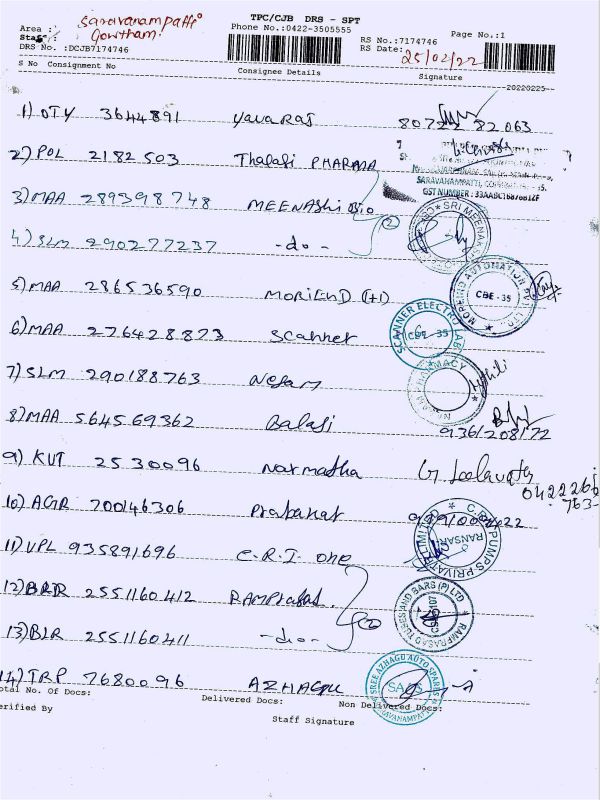 TPC/CJB DRS - SPT
Area : Saravanampatti
Phone No.:0422-3505555
Page No.:1
Staff: Gowtham
RS No.:7174746
DRS No. :DCJB7174746
RS Date: 25/02/22
S No Consignment No Consignee Details Signature
20220225
1) OTY 3644891 Yavaraj 80722 82063
2) POL 2182503 Thalasi PHARMA
SARAVANAMPATTI,
GST NUMBER : 33AABC1687681ZF
3) MAA 289398748 MEENAShi Bio 2
SRI MEENAKSHI
4) SLM 290277237 -do-
5) MAA 286536590 MORIEND (H)
MOPEND AUTOMATION PVT. LTD
CBE-35
6) MAA 276428873 Scanner
SCANNER ELECTRO LAB
CBE-35
7) SLM 290188763 Nesam
PHARMACY
8) MAA 564569362 Balaji
9361208172
9) KUT 2530096 Narmatha G. Leelavathy
042226
763-
10) AGR 700146306 Prabakar
11) VPL 935891696 C.R.I one
C.R.I PUMPS PRIVATE LIMITED
12) BLR 2551160412 RAMPrasad 2
RAMPRASAD TUBES AND BARS (P) LTD
13) BLR 2551160411 -do-
14) TRP 7680096 AZHAGU
SREE AZHAGU AUTO SPARES
SAAS
SARAVANAMPATTI
otal No. Of Docs: Delivered Docs: Non Delivered Docs:
erified By
Staff Signature